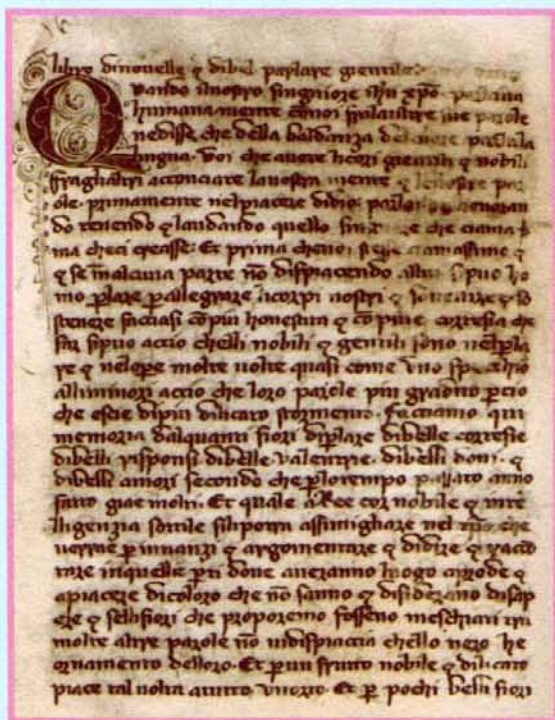 libro dinouelle ⁊ dibel parlare gientile
Quando ilnostro singniore ihu xpo parlaua
humana mente connoi fralaltre sue parole
nedisse che della baldanza delcuore parla la
lingua. Voi che auete hcori gientili ⁊ nobili
fraghaltri acconciate lauostra mente ⁊ leuostre par
ole. primamente nelpiacere didio. parlando honoran
do temendo ⁊ laudando quello singniore che ciama p
ma checi creasse. Et prima chenoi stessi ciamassimo ⁊
⁊ se inalcuna parte nō dispiacendo allui si puo ho
mo plare p allegrare ilcorpi nostri ⁊ souenire ⁊ so
stenere facciasi cōpiu honesta ⁊ cō piue cortesia che
far sipuo accio chelli nobili ⁊ gentili sono nelpla
re ⁊ nelopere molte uolte quasi come vno specchio
alliminori accio che loro parole piu gradito pcio
che escie dipiu dilicato stormento. Facciamo qui
memoria dalquanti fiori diplare dibelle cortesie
dibelli risponsi dibelle valentrie. dibelli doni. ⁊
dibelli amori secondo che plotempo passato anno
fatto giae molti. Et quale aRee cor nobile ⁊ inte
lligenzia sottile silipotra assimigliare nel tēpo che
uerrae p innanzi ⁊ argomentare ⁊ didire ⁊ racco
ntare inquelle pti doue aueranno luogo aprode ⁊
apiacere dicoloro che nō sanno ⁊ disiderano disap
ere ⁊ sellifiori che proporemo fosseno meschiati tra
molte altre parole nō uidispiaccia chello nero he
ornamento delloro. Et pun frutto nobile ⁊ dilicato
piace tal uolta atutto vnorto. Et p pochi belli fiori